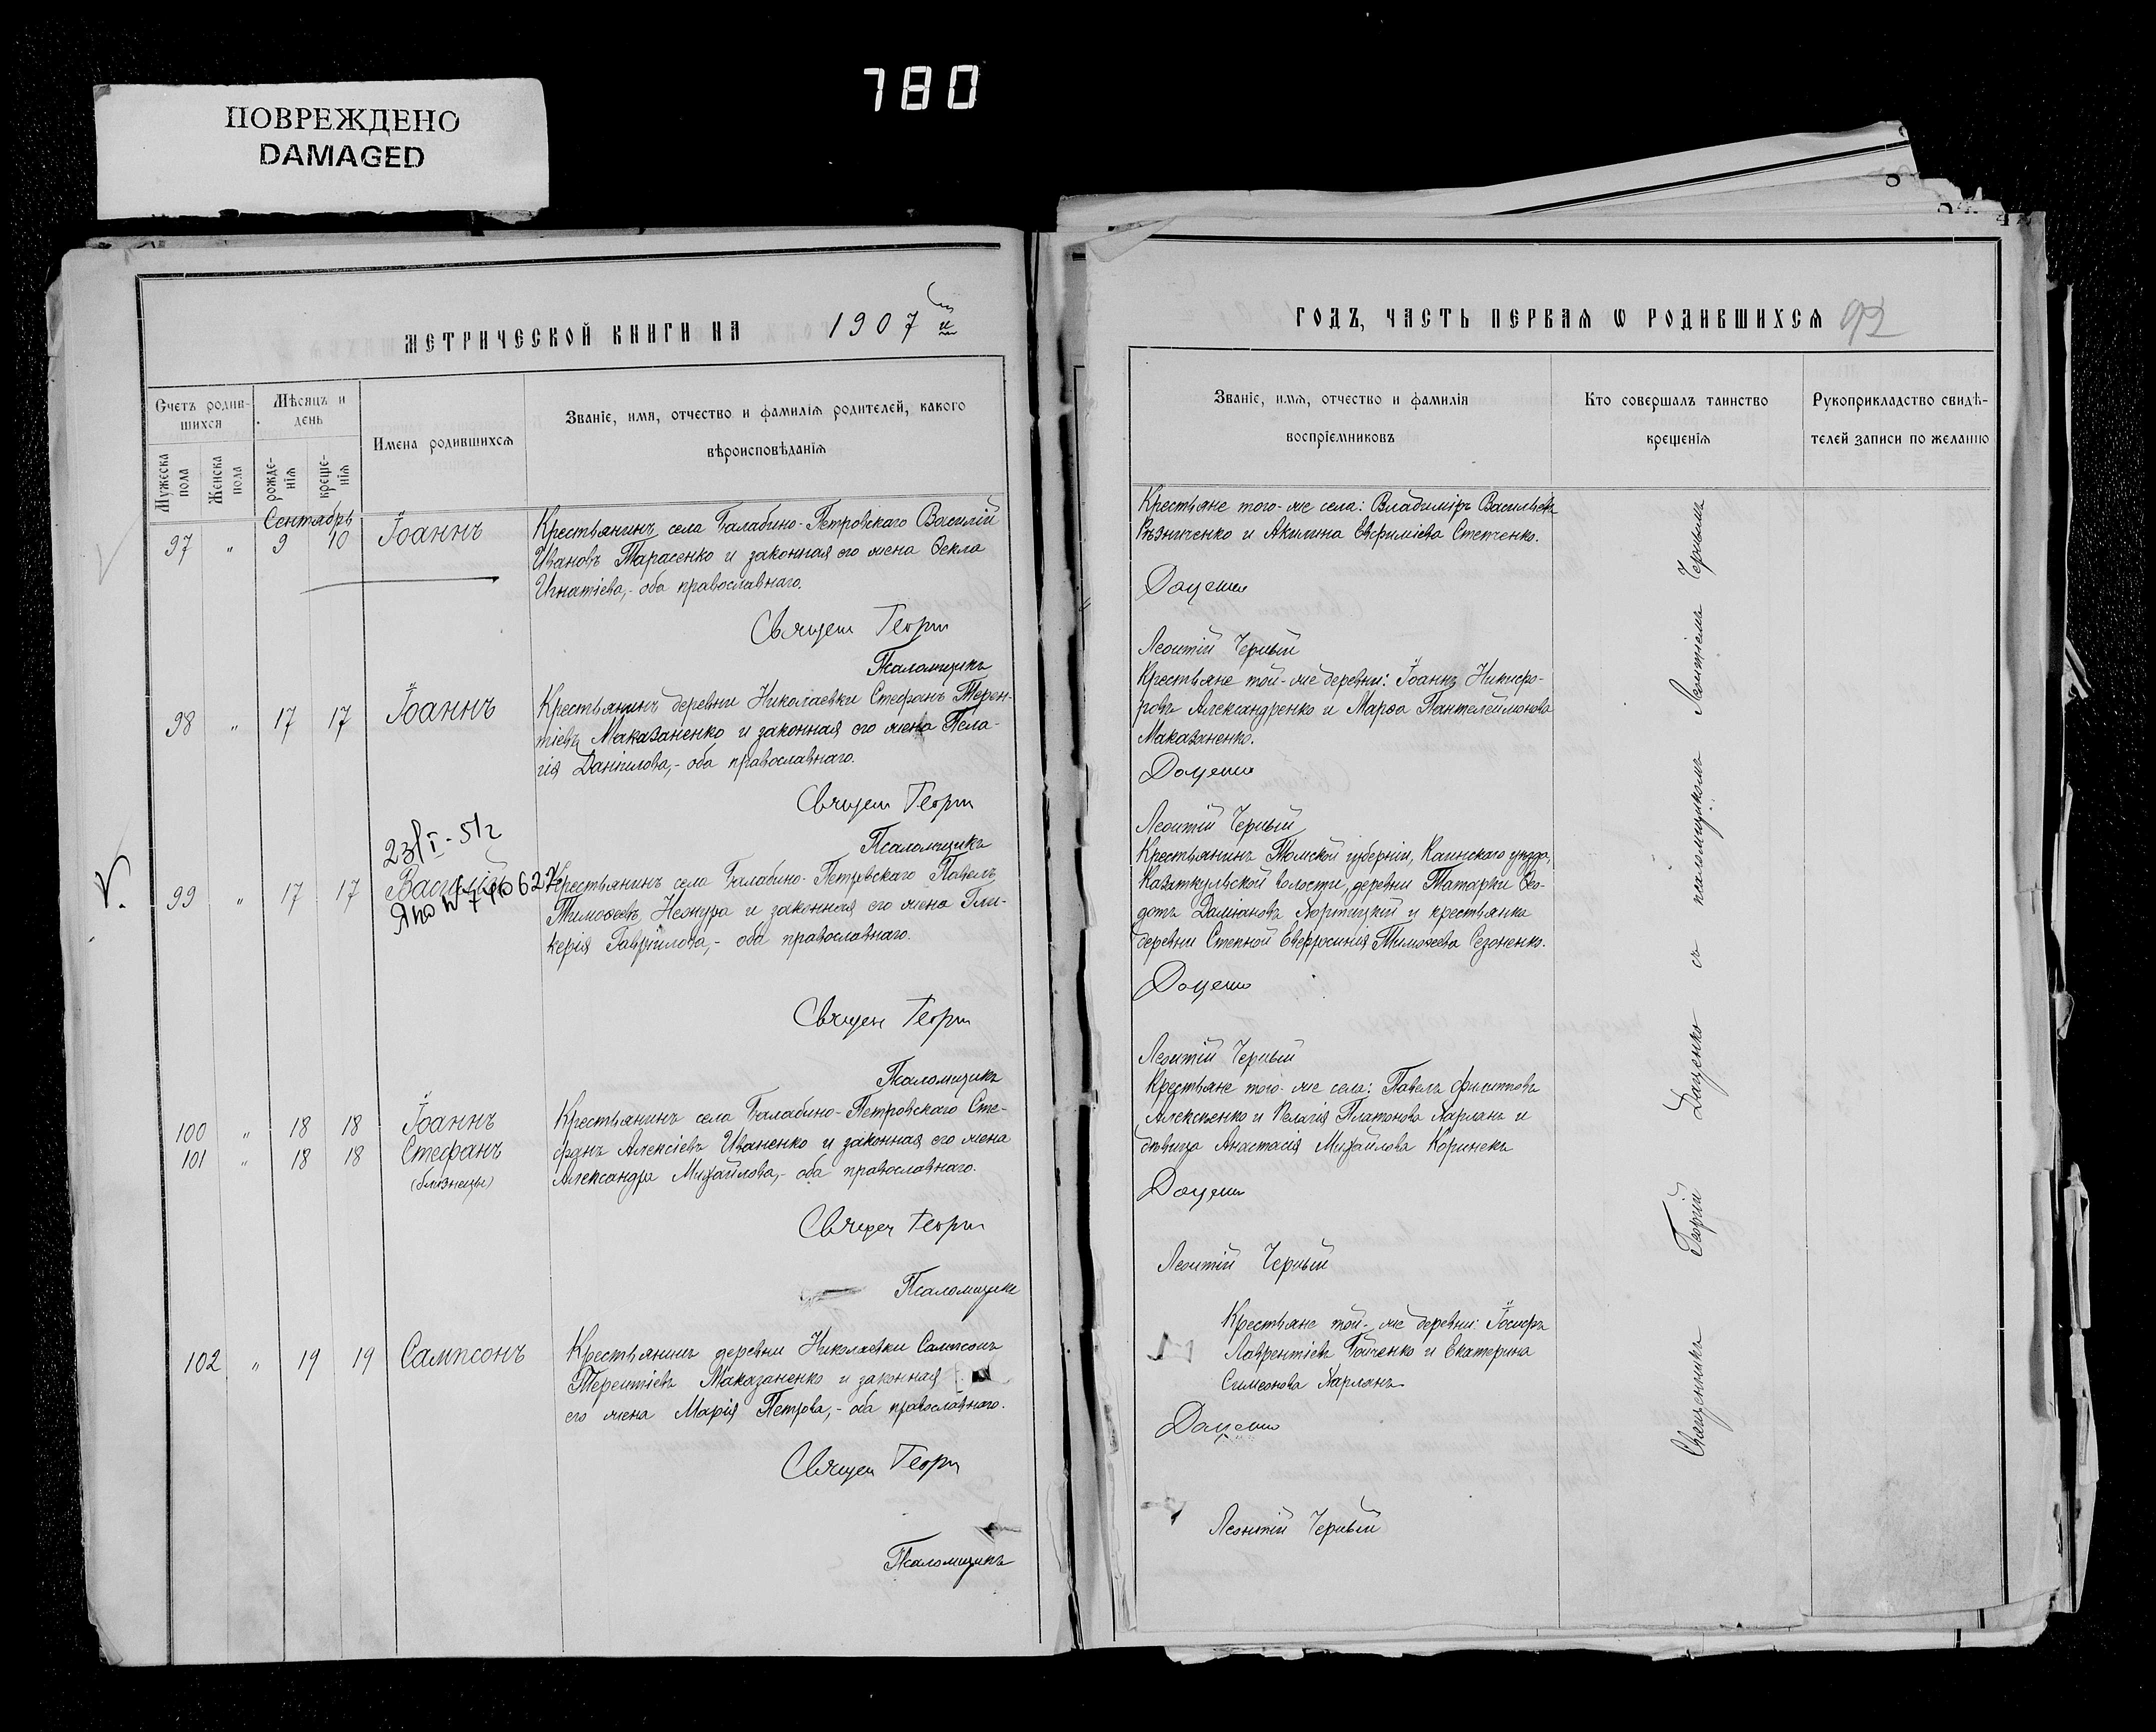 780
ПОВРЕЖДЕНО
DAMAGED
МЕТРИЧЕСКОЙ КНИГИ НА 1907 й
Счетъ родив-
шихся
Мѣсяцъ и
день
Имена родившихся
Званіе, имя, отчество и фамилія родителей, какого
вѣроисповѣданія
Мужеска
пола
Женска
пола
рожде-
нія
креще-
нія
Сентябрь
97 " 9 10 Іоаннъ
Крестьянинъ села Балабино-Петровскаго Василій
Ивановъ Тарасенко и законная его жена Ѳекла
Игнатіева,- оба православнаго.
Священ Георгі
Псаломщикъ
98 " 17 17 Іоаннъ
Крестьянинъ деревни Николаевки Стефанъ Терен-
тіевъ Маказаненко и законная его жена Пела-
гія Даніилова,- оба православнаго.
Священ Георгі
Псаломщикъ
23/I-512
99 " 17 17 Василій
Крестьянинъ села Балабино-Петровскаго Павелъ
Тимоѳеевъ Нежура и законная его жена Гли-
керія Гавріилова,- оба православнаго.
Священ Георгі
Псаломщикъ
100 " 18 18 Іоаннъ
101 " 18 18 Стефанъ
(близнецы)
Крестьянинъ села Балабино-Петровскаго Сте-
фанъ Алексіевъ Иваненко и законная его жена
Александра Михайлова,- оба православнаго.
Священ Георгі
Псаломщикъ
102 " 19 19 Сампсонъ
Крестьянинъ деревни Николаевки Сампсонъ
Терентіевъ Маказаненко и законная
его жена Марія Петрова,- оба православнаго.
Священ Георгі
Псаломщикъ
ГОДЪ, ЧАСТЬ ПЕРВАЯ Ѡ РОДИВШИХСЯ 92
Званіе, имя, отчество и фамилія
воспріемниковъ
Кто совершалъ таинство
крещенія
Рукоприкладство свидѣ-
телей записи по желанію
Крестьяне того-же села: Владиміръ Васильевъ
Рѣзниченко и Акилина Евфиміева Степченко.
Даценко
Леонтій Черный
Крестьяне той-же деревни: Іоаннъ Никифо-
ровъ Александренко и Марѳа Пантелеймонова
Маказаненко.
Даценко
Леонтій Черный
Крестьянинъ Томской губерніи, Каинскаго уѣзда,
Казаткульской волости, деревни Татарки Ѳео-
дотъ Даміановъ Хортицкій и крестьянка
деревни Степной Евфросинія Тимоѳеева Сезоненко.
Даценко
Леонтій Черный
Крестьяне того-же села: Павелъ Филипповъ
Алексѣенко и Пелагія Платонова Харланъ и
дѣвица Анастасія Михайлова Коринекъ
Даценко
Леонтій Черный
Крестьяне той-же деревни: Іосифъ
Лаврентіевъ Бойченко и Екатерина
Симеонова Харланъ
Даценко
Леонтій Черный
Священникъ Георгій Даценко съ псаломщикомъ Леонтіемъ Чернымъ